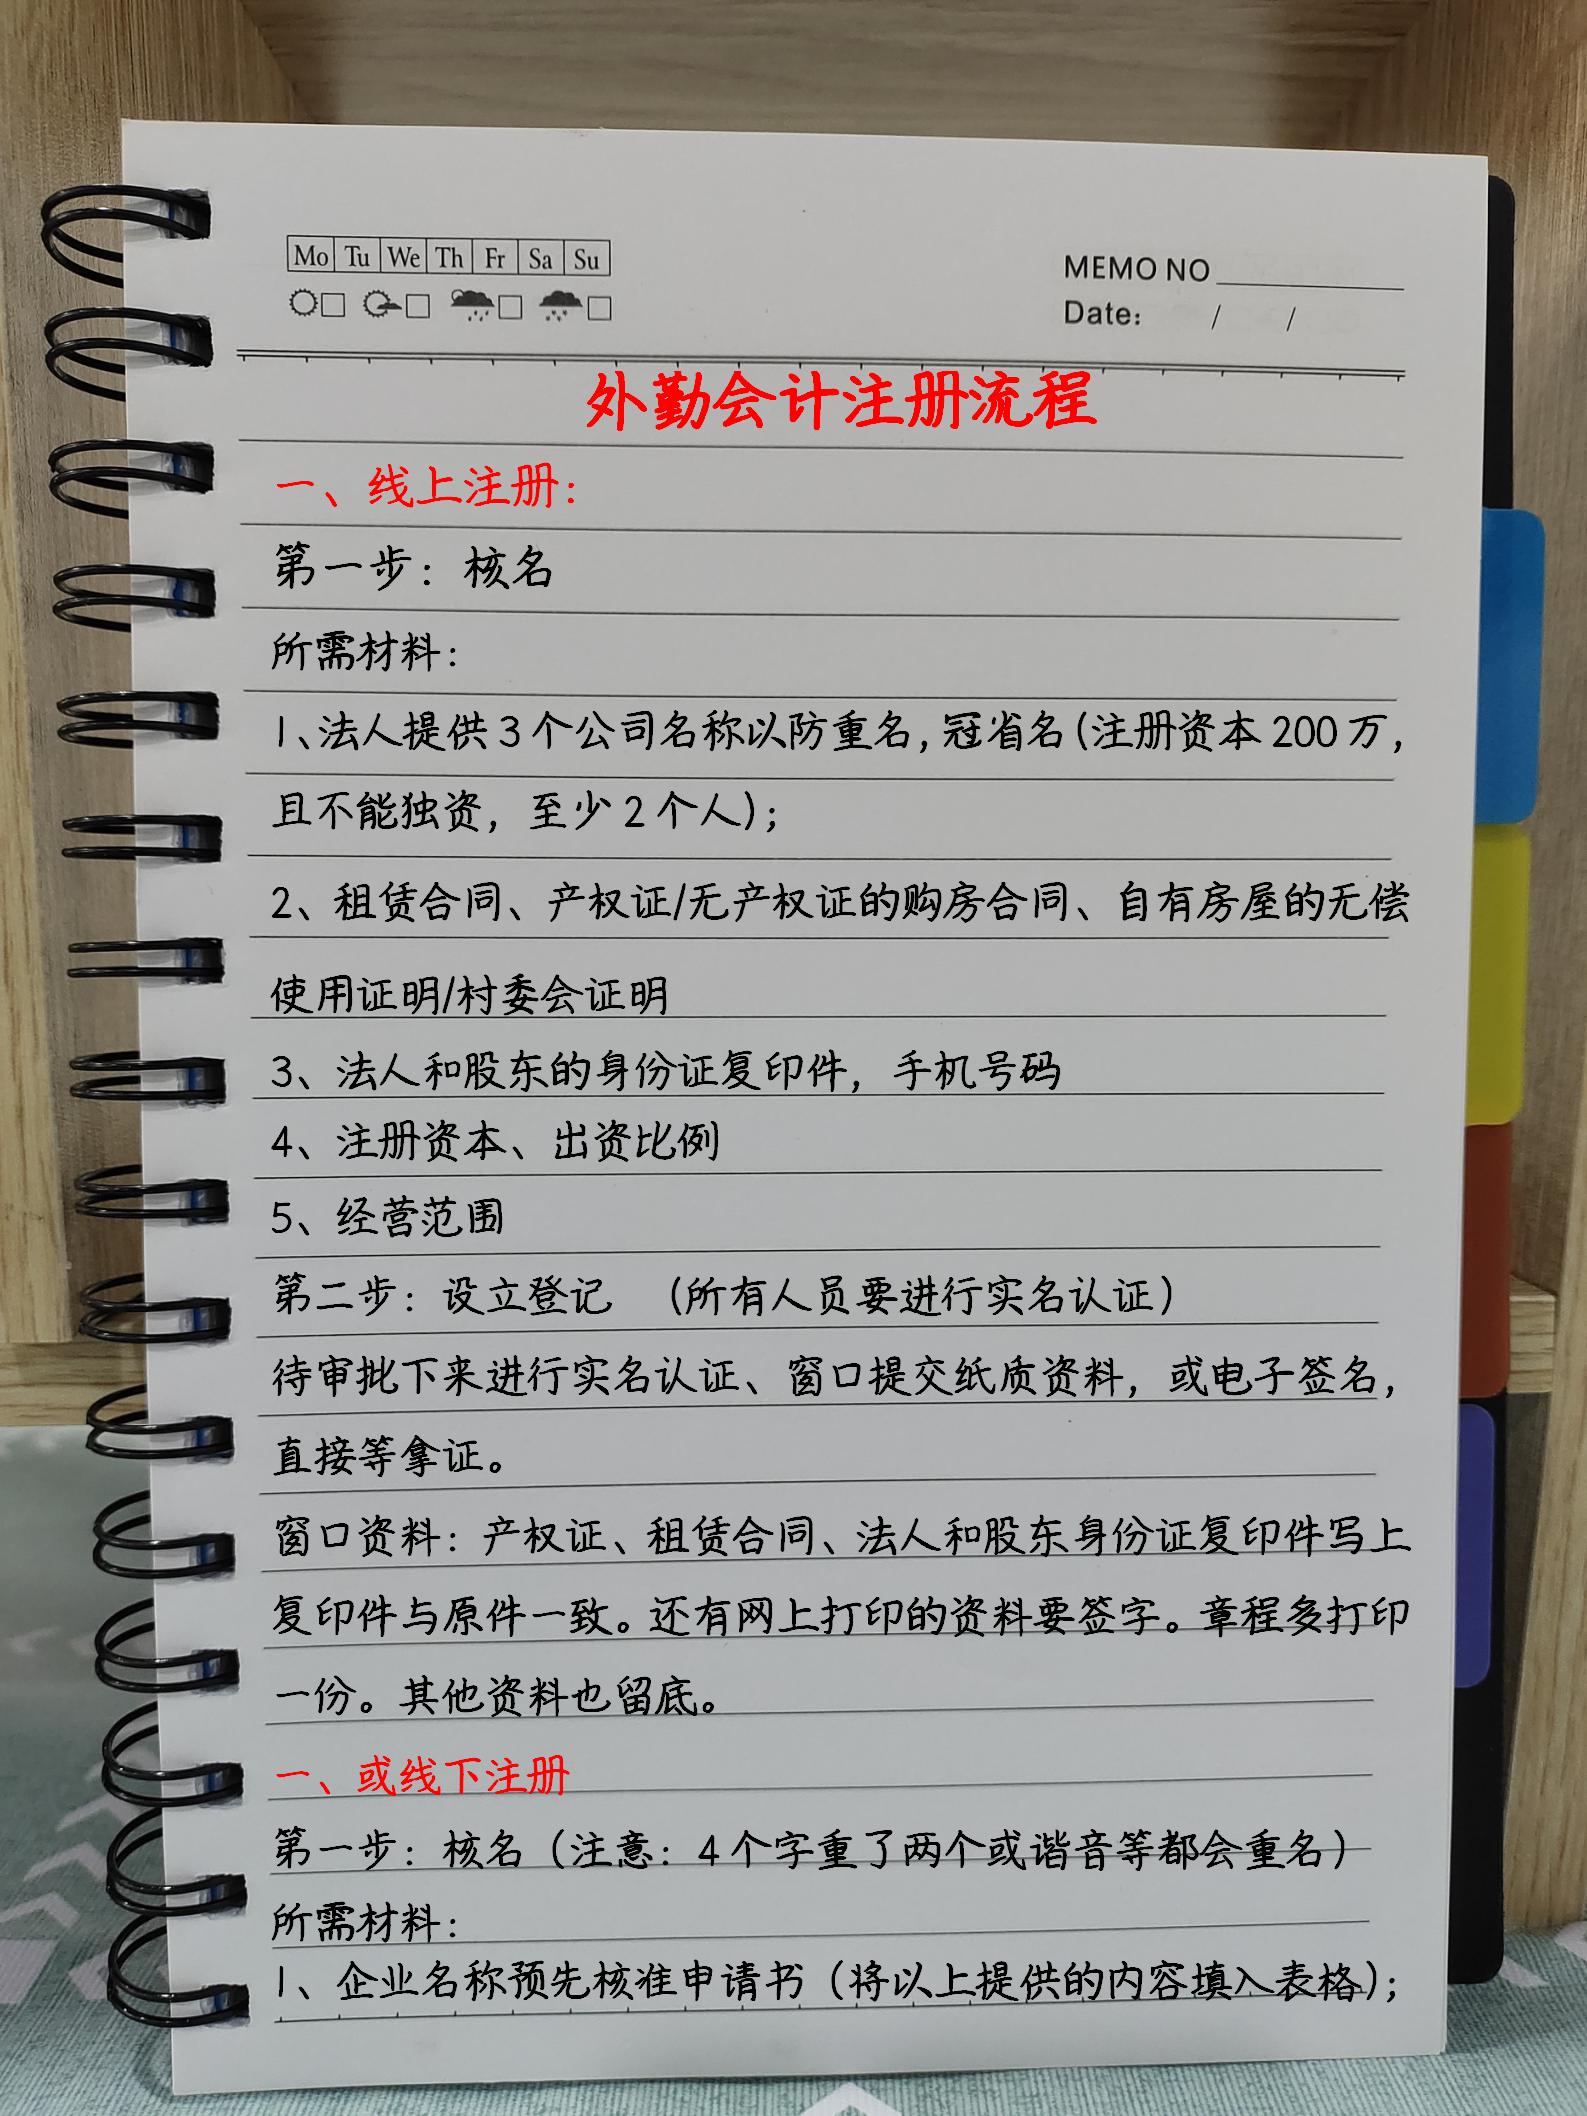 Mo Tu We Th Fr Sa Su
MEMO NO
Date: / /
外勤会计注册流程
一、线上注册：
第一步：核名
所需材料：
1、法人提供3个公司名称以防重名，冠省名（注册资本200万，
且不能独资，至少2个人）；
2、租赁合同、产权证/无产权证的购房合同、自有房屋的无偿
使用证明/村委会证明
3、法人和股东的身份证复印件，手机号码
4、注册资本、出资比例
5、经营范围
第二步：设立登记 （所有人员要进行实名认证）
待审批下来进行实名认证、窗口提交纸质资料，或电子签名，
直接等拿证。
窗口资料：产权证、租赁合同、法人和股东身份证复印件写上
复印件与原件一致。还有网上打印的资料要签字。章程多打印
一份。其他资料也留底。
一、或线下注册
第一步：核名（注意：4个字重了两个或谐音等都会重名）
所需材料：
1、企业名称预先核准申请书（将以上提供的内容填入表格）；